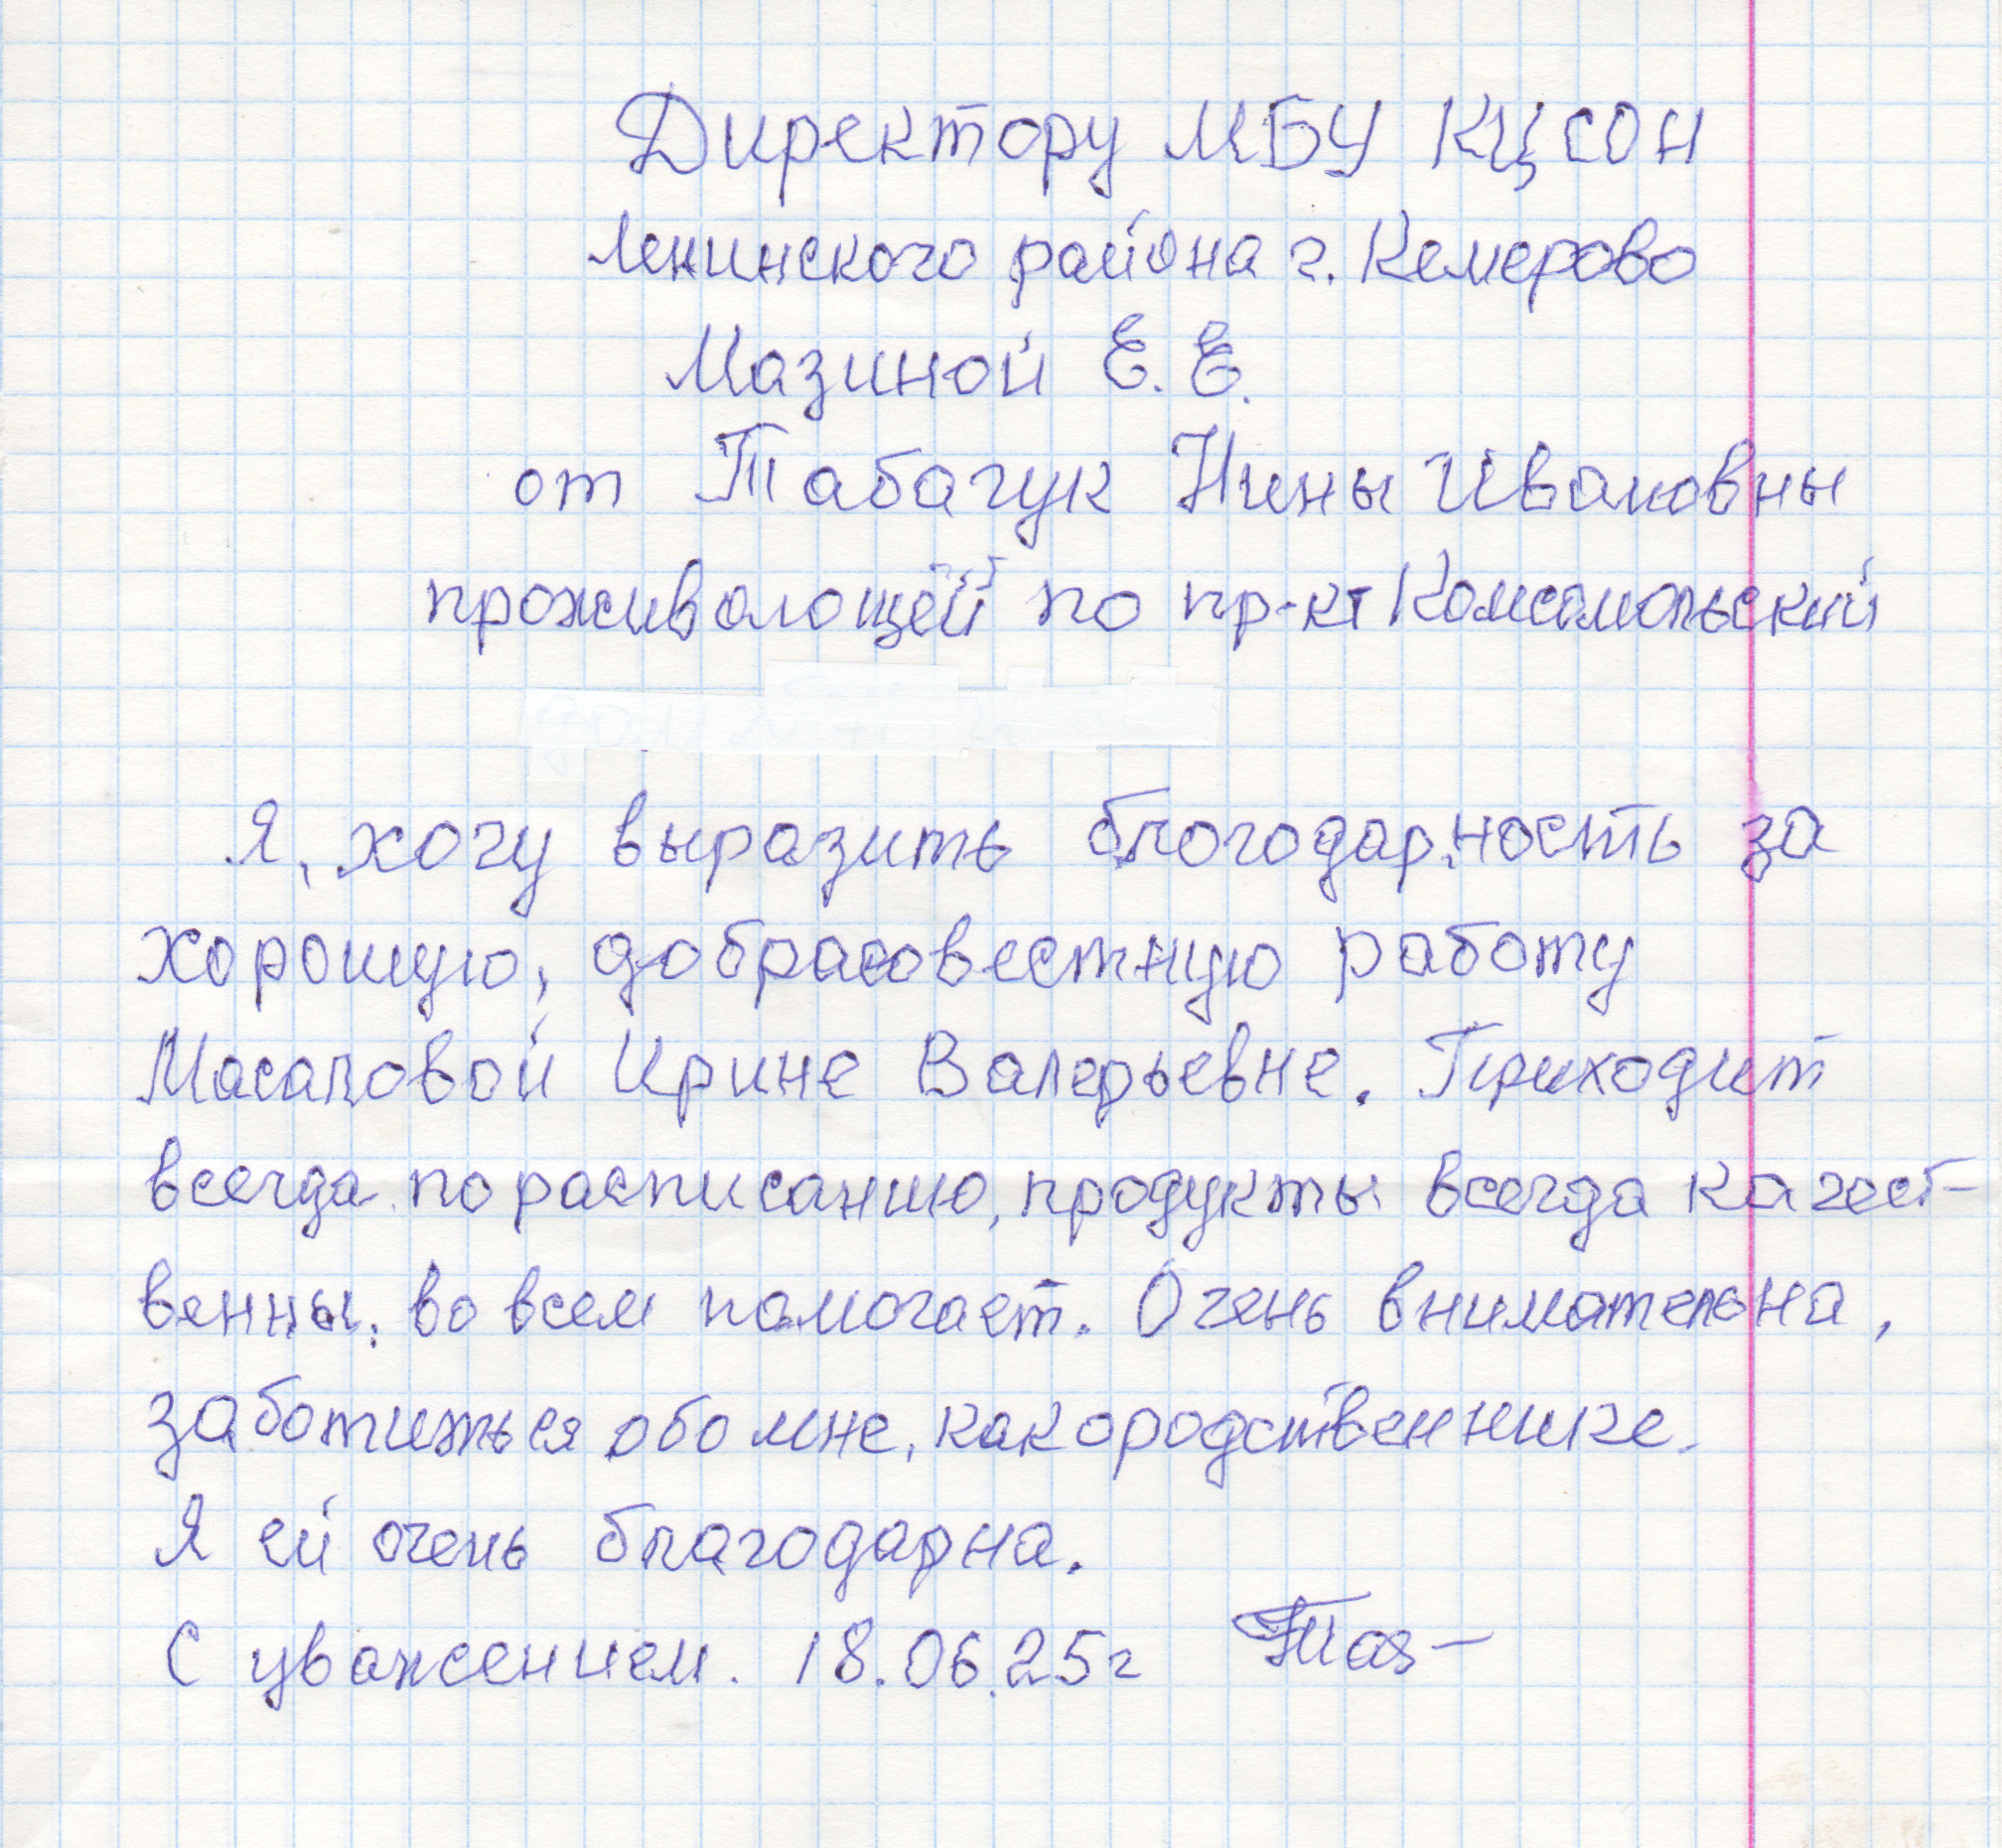 Директору МБУ КЦСОН
Ленинского района г. Кемерово
Мазиной Е. Е.
от Табачук Нины Ивановны
проживающей по пр-кт Комсомольский
Я, хочу выразить благодарность за
хорошую, добрасовестную работу
Масаловой Ирине Валерьевне. Приходит
всегда по расписанию, продукты всегда качест-
венны, во всем памогает. Очень внимательна,
заботиться обо мне, как о родственнике.
Я ей очень благодарна.
С уважением. 18.06.25г